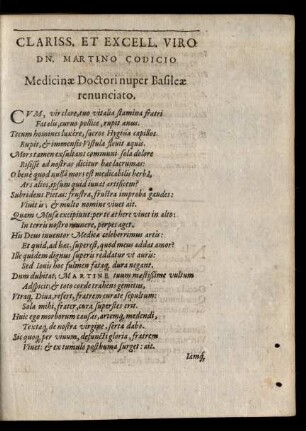 CLARISS. ET EXCELL. VIRO
DN. MARTINO CODICIO
Medicinæ Doctori nuper Basileæ
renunciato.
CVM, vir clare, tuo vitalia stamina fratri
Fatalis, curuo pollice, rupit anus.
Tecum homines luxêre, sacros Hygeia capillos
Rupit, & immensis Vistula fleuit aquis.
Mors tamen exsultans communi sola dolere
Risisse ad nostras dicitur hæc lacrumas:
O benè quòd nulla mors est medicabilis herbâ,
Ars alios, ipsum quid iuuat artificem?
Subridens Pietas: frustra, frustra improba gaudes:
Viuit is, & multo nomine viuet ait.
Quam Musa excipiunt: per te æthere viuet in alto:
In terris nostro munere, perpes aget.
His Deus inuentor Medicæ celeberrimus artis:
Et quid, ad hæc, superest, quod meus addas amor?
Ille quidem dignus superis reddatur vt auris:
Sed Ionis hoc fulmen fataq; dura negant.
Dum dubitat, MARTINE tuum mæstissime vultum
Adspicit: & toto corde trahens gemitus,
Vtraq, Diua, refert, fratrem curate sepultum:
Sola mihi, frater, cura superstes erit.
Huic ego morborum causas, artemq, medendi,
Textaq, de nostra virgine, serta dabo.
Sic quoq, per viuum, defuncti gloria, fratrem
Viuet: & ex tumulo posthuma surget: ait.
Iamq,